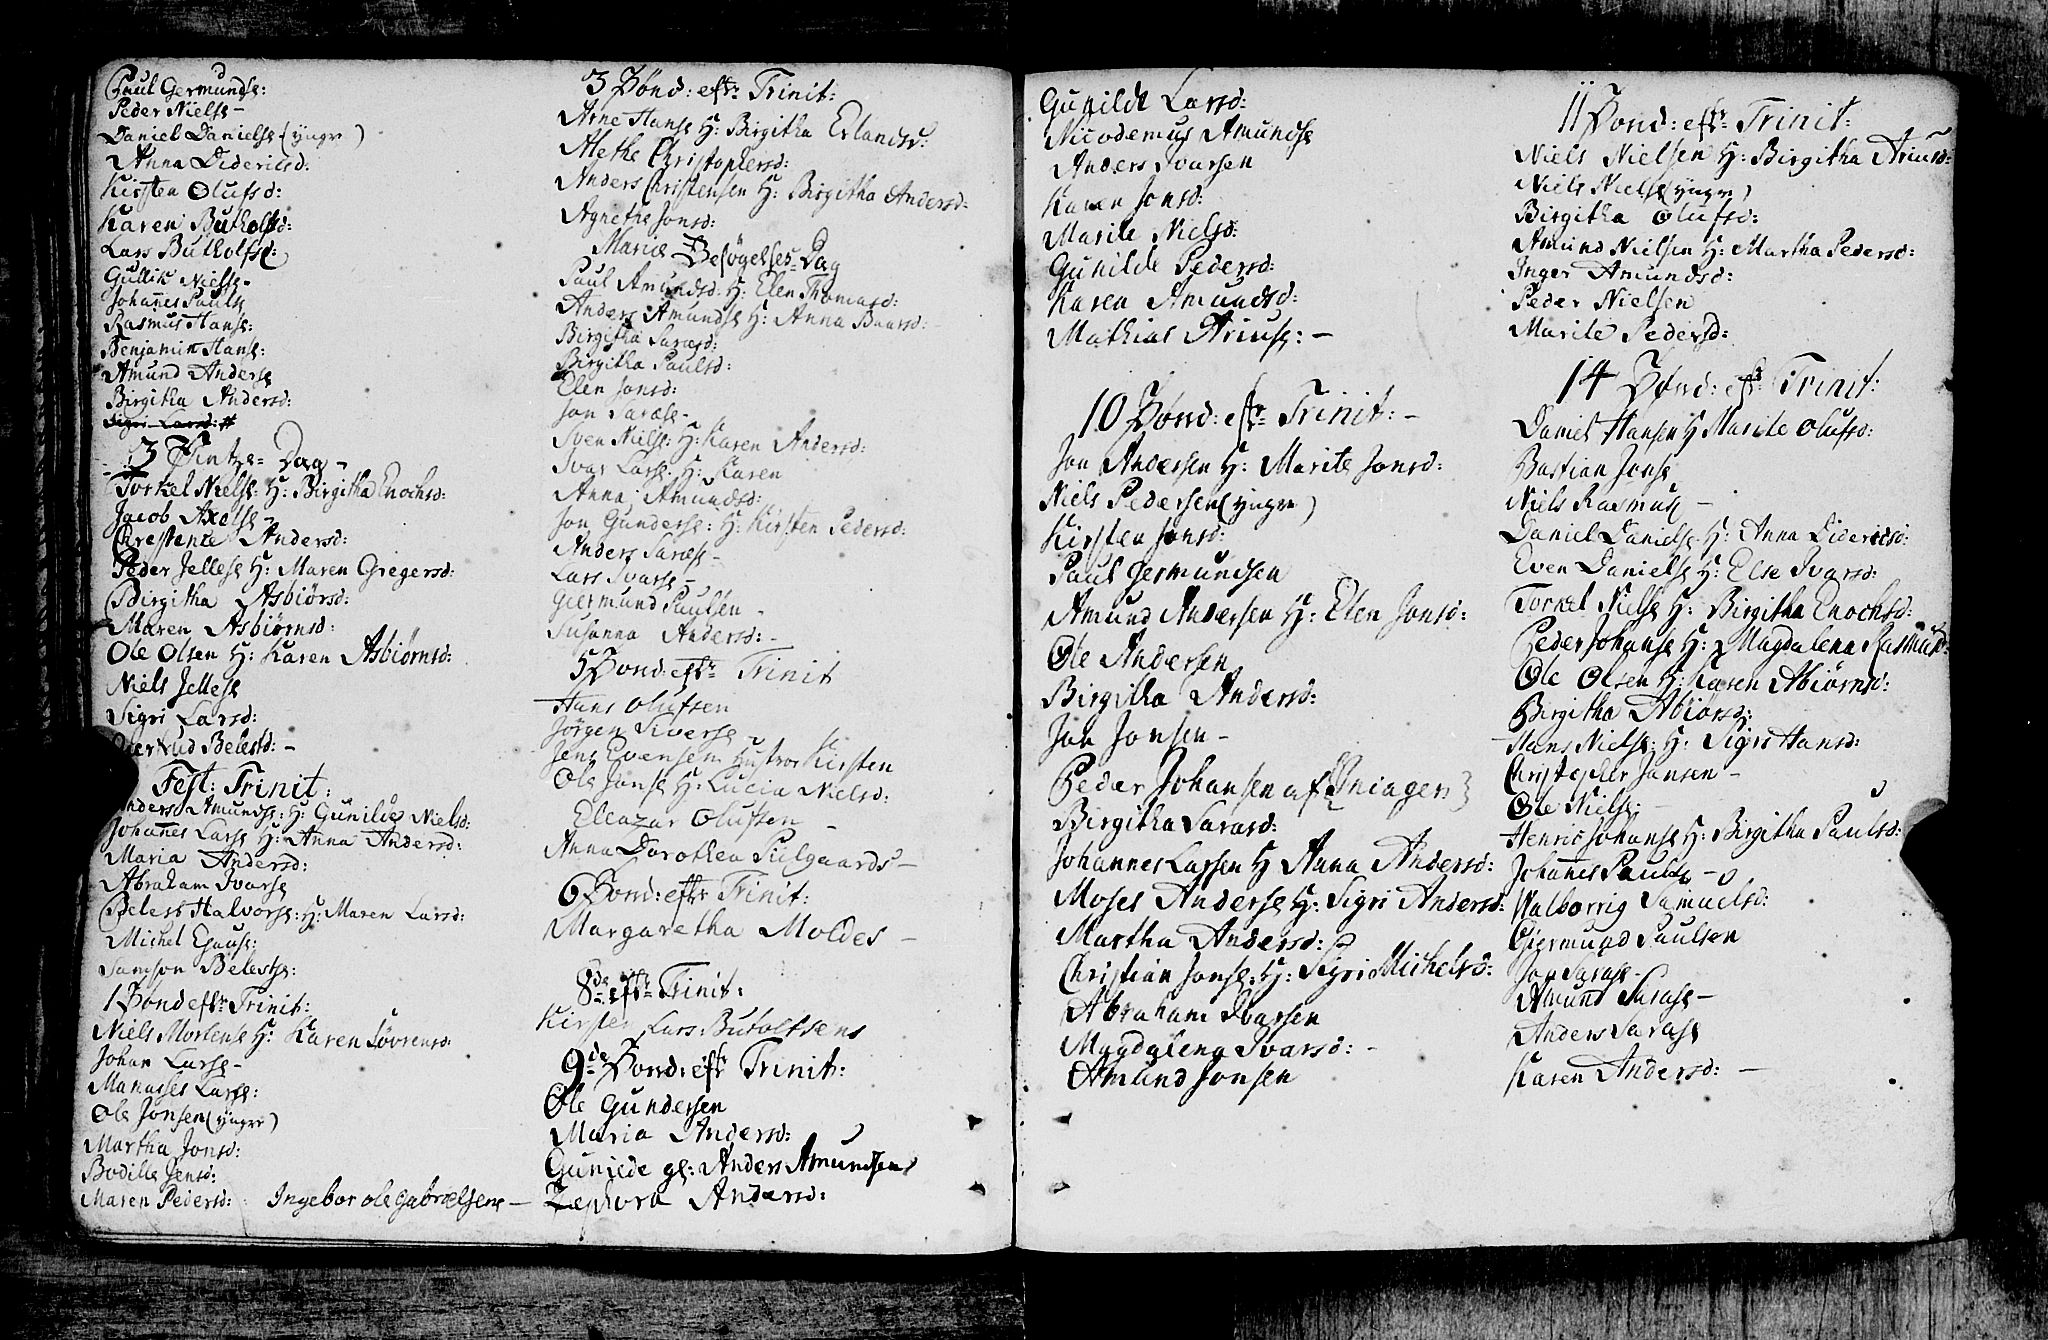 Paul Germundse:
Peder Nielse -
Daniel Danielse (yngre)
Anna Didericsd:
Kirsten Olufsd:
Karen Butholfsd:
Lars Butholfse:
Gullik Nielse -
Johannes Paulse
Rasmus Hanse:
Benjamin Hanse:
Amund Anderse
Birgitha Andersd:
Sigri Larsd:
3 Pintze= Dag -
Torkel Nielse: H: Birgitha Enochsd:
Jacob Axelse -
Chrestense Andersd:
Peder Jellese H: Maren Gregersd:
Birgitha Asbiörsd:
Maren Asbiörnsd:
Ole Olsen H: Karen Asbiörnsd:
Niels Jellese
Sigri Larsd:
Giertrud Belestsd: -
Fest: Trinit:
Anders Amundse: H: Gunilde Nielsd:
Johannes Larse H: Anna Andersd:
Maria Andersd:
Abraham Ivarse
Belest Halvorse: H: Maren Larsd:
Michel
Samson Belestse:
1 Sönd eftr Trinit:
Niels Mortense H: Karen Sövrensd:
Johan Larse -
Manasses Larse:
Ole Jonsen (yngre)
Martha Jonsd:
Bodille Jensd:
Maren Pedersd: Ingebor ole Gabrielsens -
3 Sönd: eftr Trinit:
Arne Hanse H: Birgitha Erlandsd:
Alethe Christophersd:
Anders Christensen H: Birgitha Andersd:
Agnethe Jonsd:
Mariæ Besögelses= Dag
Paul Amundsd: H: Elen Thomasd:
Anders Amundse H: Anna Baarsd:
Birgitha Sarasd:
Birgitha Paulsd:
Elen Jonsd:
Jon Sarase -
Sven Nielse: H: Karen Andersd:
Ivar Larse: H: Karen
Anna Amundsd:
Jon Gunderse: H: Kirsten Pedersd:
Anders Sarase -
Lars Ivarse -
Giermund Paulsen -
Susanna Andersd: -
5 Sönd: eftr Trinit
Hans Olufsen
Jörgen Siverse -
Jens Evensens Hustroe Kirsten
Ole Jonse H: Lucia Nielsd:
Eleazar Olufsen -
Anna Dorothea Pulgaards -
6 Sönd: eftr Trinit:
Margaretha Moldes -
8de eftr Trinit:
Kirsten Lars: Butolfsens
9de Sönd: eftr Trinit:
Ole Gundersen
Maria Andersd:
Gunilde gl: Anders Amundsens
Zephora Andersd:
Gunilde Larsd:
Nicodemus Amundse
Anders Ivarsen
Karen Jonsd:
Marite Nielsd:
Gunilde Pedersd:
Karen Amundsd:
Mathias Ariuse: -
10 Sönd: eftr Trinit: -
Jon Andersen H: Marite Jonsd:
Niels Pedersen (yngre)
Kirsten Jonsd:
Paul Jermundsen
Amund Andersen H: Elen Jonsd:
Ole Andersen
Birgitha Andersd:
Jon Jonsen -
Peder Johansen af
Birgitha Sarasd:
Johannes Larsen H Anna Andersd:
Moses Anderse H: Sigri Andersd:
Martha Andersd:
Christian Jonse: H: Sigri Michelsd:
Abraham Ivarsen
Magdalena Ivarsd: -
Amund Jonsen
11 Sönd: eftr Trinit:
Niels Nielsen H: Birgitha Ariusd:
Niels Nielse (yngre)
Birgitha Olufsd:
Amund Nielsen H: Martha Pedersd:
Inger Amundsd:
Peder Nielsen
Marite Pedersd:
14 Sönd: eftr Trinit:
Daniel Hansen H Marite Olufsd:
Bastian Jonse
Niels Rasmuse -
Daniel Danielse H: Anna Didericsd:
Even Danielse H: Else Ivarsd:
Torkel Nielse H: Birgitha Enochsd:
Peder Johanse H: Magdalena Rasmusd:
Ole Olsen H: Karen Abiörnsd:
Birgitha Abiörsd:
Hans Nielse: H: Sigri Hansd:
Christopher Jansen -
Ole Nielse: -
Henric Johanse H: Birgitha Paulsd:
Johannes Paulse -
Walborrig Samuelsd:
Giermund Paulsen
Jon Sarase -
Amund Sarase -
Anders Sarase
Karen Andersd: -